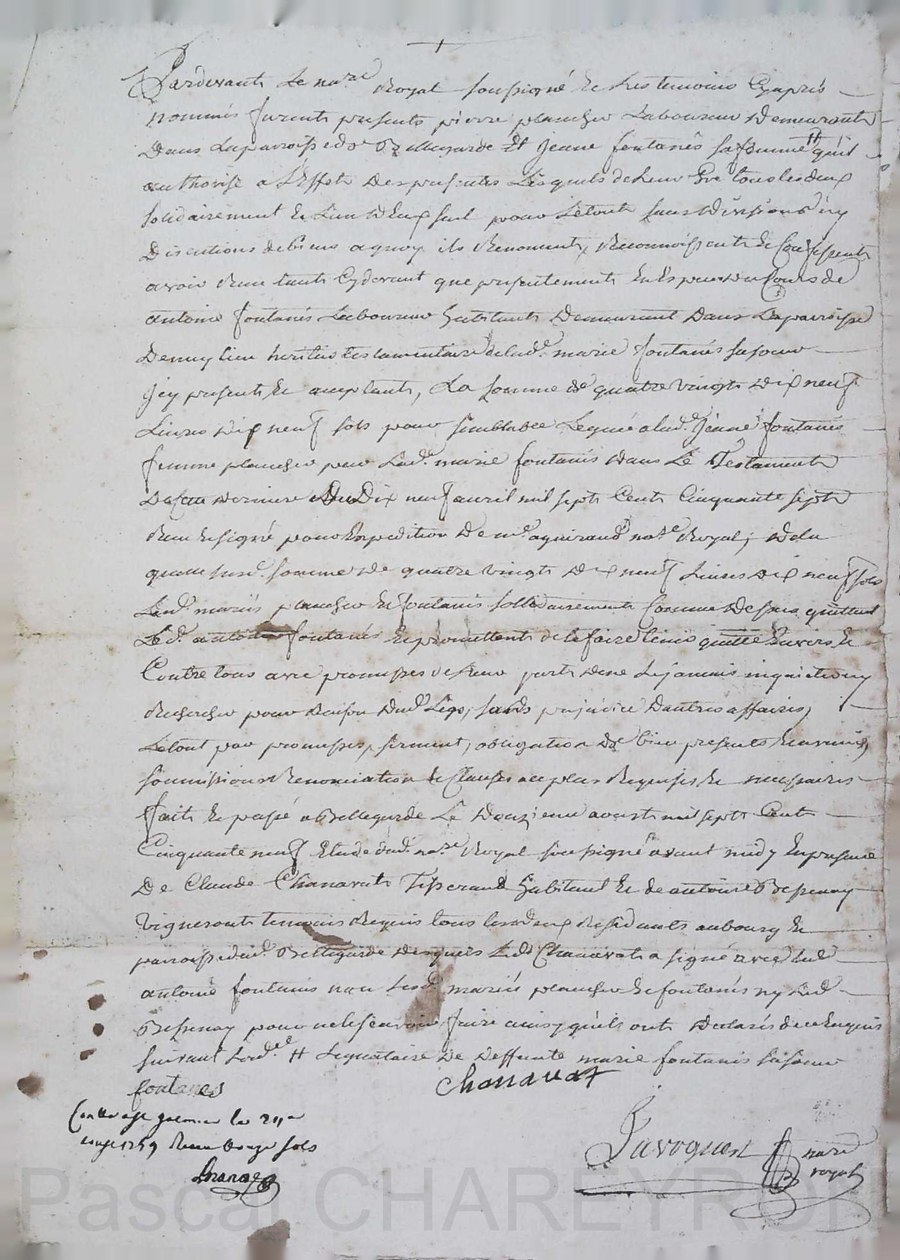 Pardevant Le no.re Royal soussigné Et Les temoins Cyaprés
nommés furent presents pierre plancher Laboureur Demeurant
Dans La paroisse de Bellegarde Et Jeanne fontanés sa femme # quil
authorise a L'Effet Des presentes Lesquels de Leur Gré tous les deux
solidairement Et L'un D'Eux seul pour Le tout sans Divisions ny
Discutions de biens a quoy ils Renoncent, Reconnoissent Et Confessent
avoir Reçu tant Cydevant que presentement En Espece du Cours de
antoine fontanés Laboureur habitant Demeurant Dans La paroisse
heritier testamentaire de Lad.e marie fontanés sa soeur
Jcy present Et acceptant, La somme de quatre vingt Dix neuf
Livres Dix neuf sols pour semblable Legué a Lad.e Jeanne fontanés
femme plancher par Lad.e marie fontanés Dans Le Testament
Du Dix neuf avril mil sept Cent Cinquante sept
pour Expedition De m.e not.e Royal, De La
quelle susd.e somme De quatre vingts Dix neuf Livres Dix neuf sols
Lesd. mariés plancher Et fontanés sollidairement Comme Dessus quittent
Led. antoine fontanés Et promettent de le faire tenir quitte Envers Et
Contre tous avec promesses de Leur part De ne Le jamais inquietter ny
Rechercher pour Raison Dud. Legs, sans prejudice D'autres affaires,
Le tout par promesses, serment, obligation De biens presents Et avenir,
soumissions Renonciation Et Clauses au plus Requises Et necessaires
fait Et passé a Bellegarde Le Douzieme aoust mil sept Cent
Cinquante neuf Etude dud. no.re Royal soussigné avant midy En presence
De Claude Chanavat Tisserand habitant Et de antoine Bessenay
vigneront temoins Requis tous les deux Residants au bourg Et
paroisse dud. Bellegarde Desquels Led. Chanavat a signé avec Led.
antoine fontanés non Lesd. mariés plancher Et fontanés ny Led.
Bessenay pour ne le sçavoir faire ainsy quils ont Declarés de ce Enquis
suivant L'ord.ce # Legataire De Deffunte marie fontanés sa soeur
fontanes
chanavat
Controllé
1759 Reçu Douze sols
Javogues no.re
royal
Pascal CHAREYRON